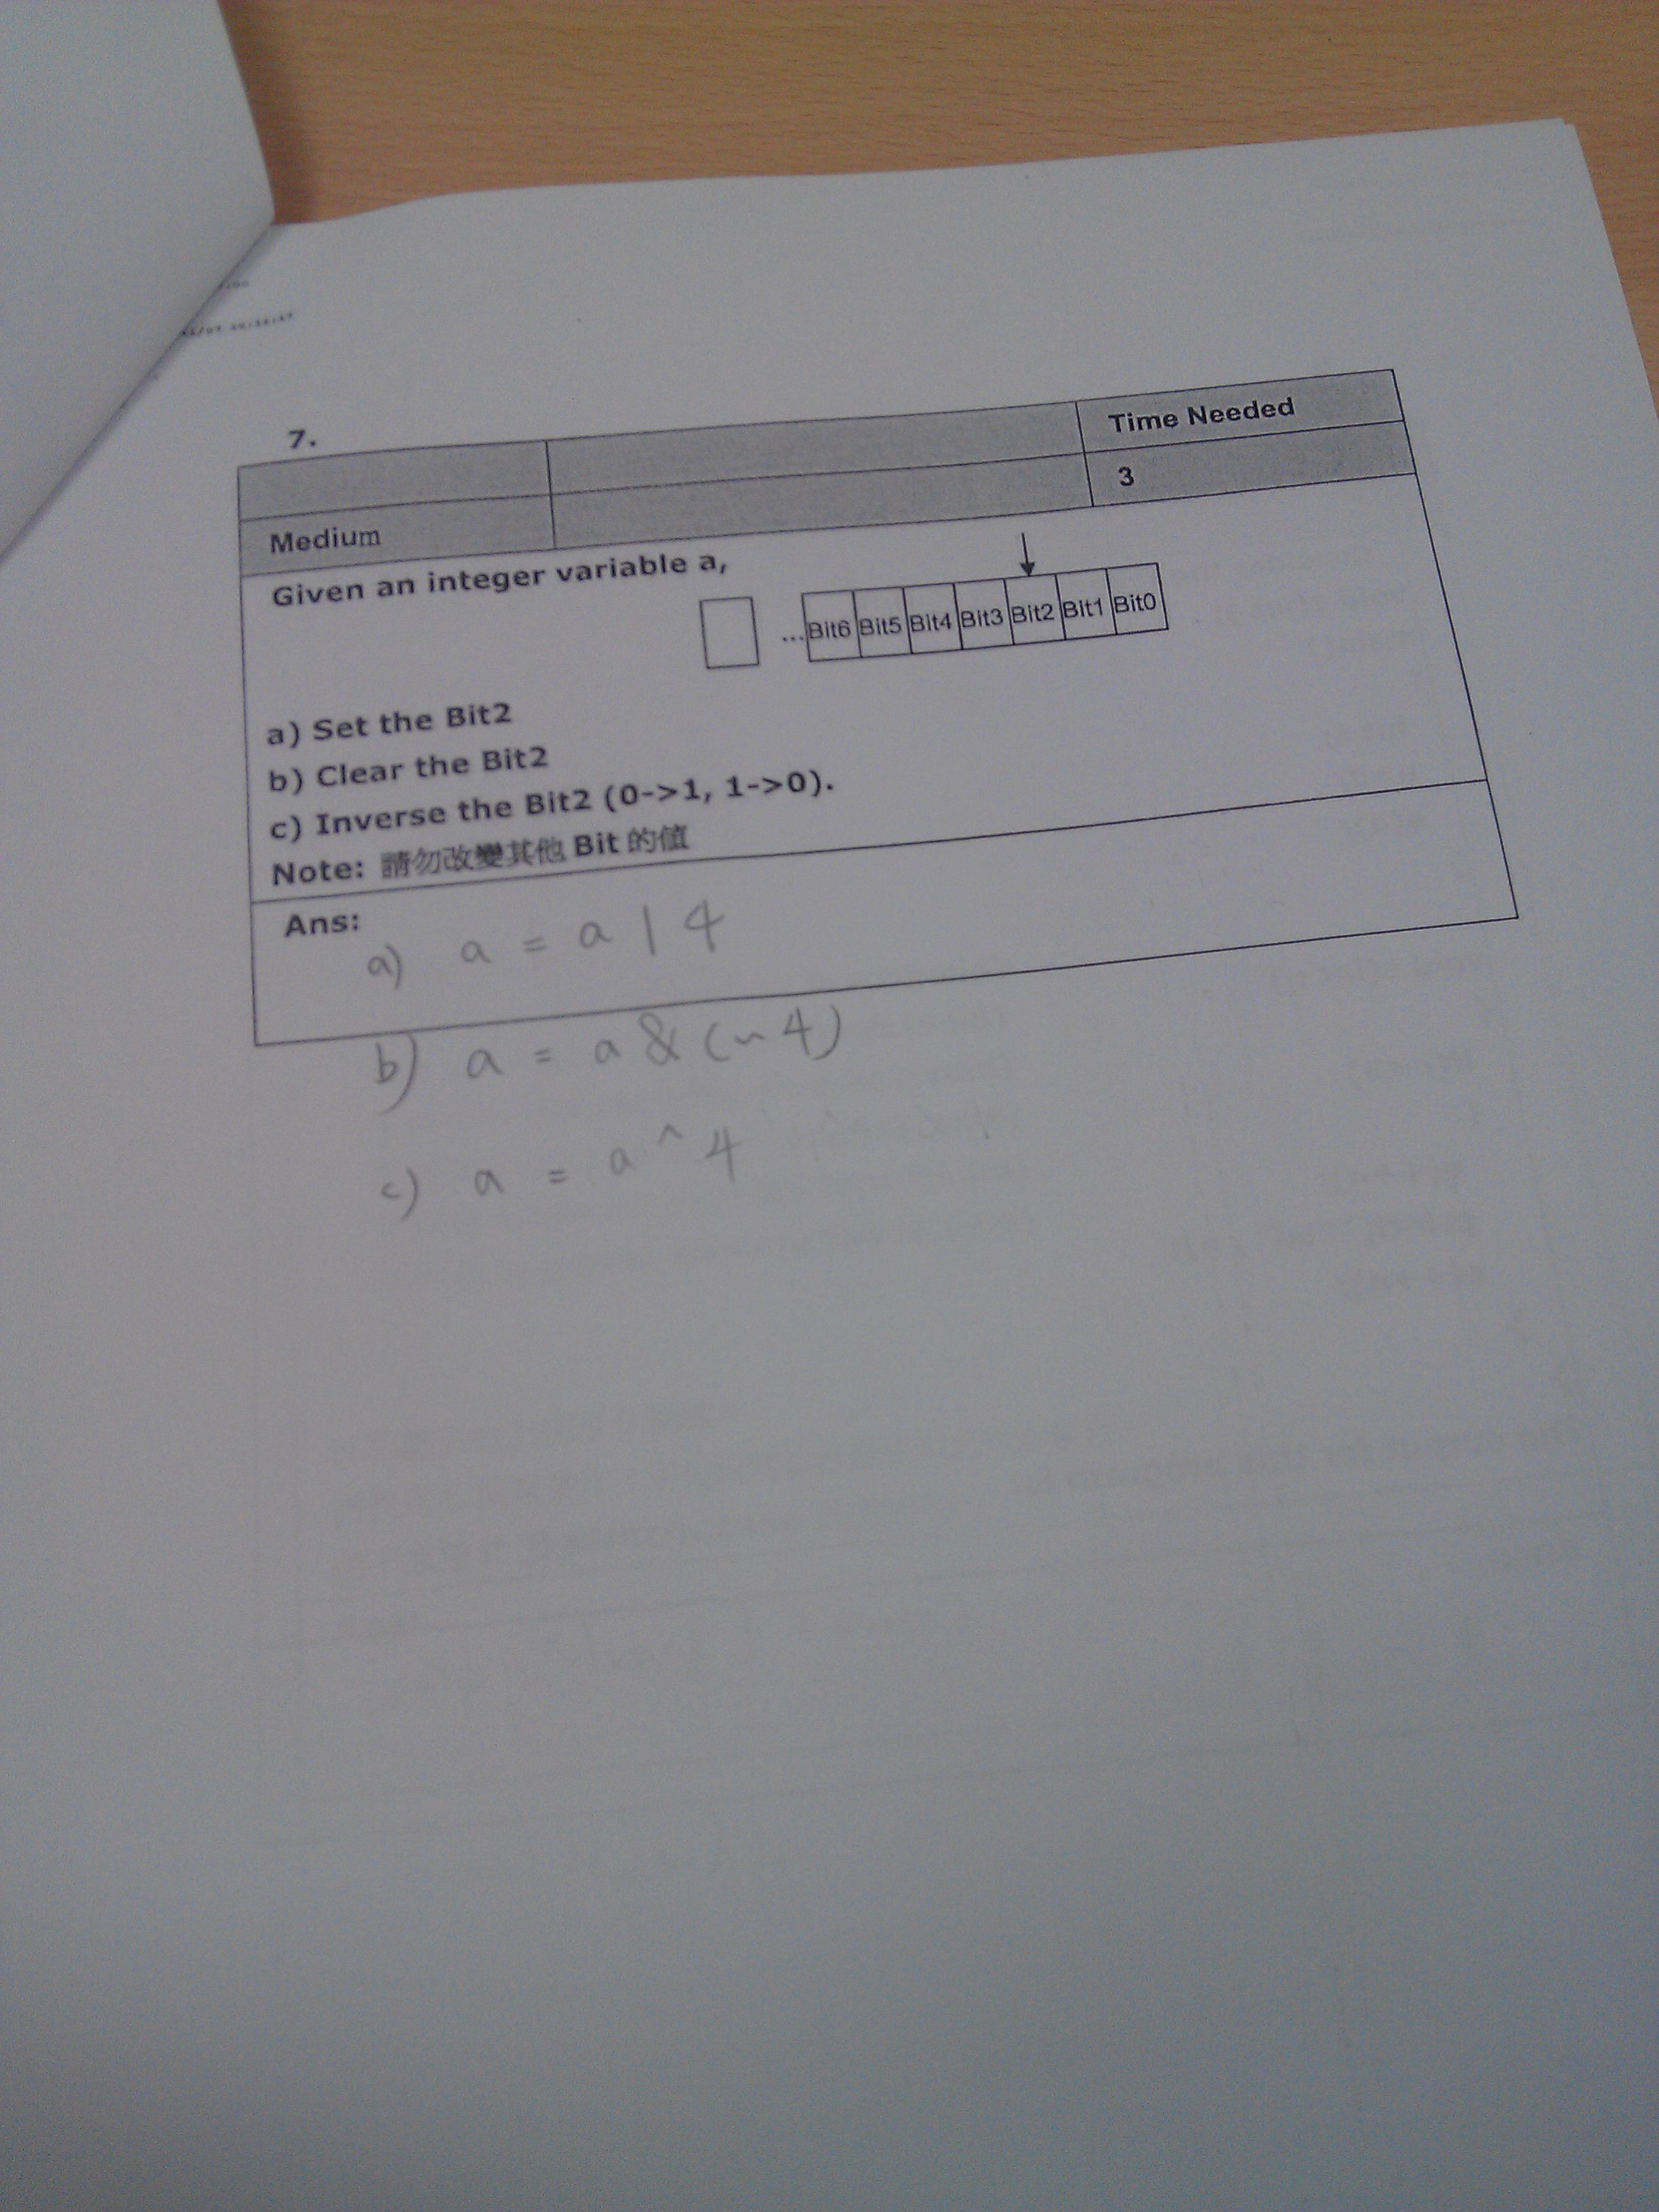 7.
Time Needed
Medium 3
Given an integer variable a,
... Bit6 Bit5 Bit4 Bit3 Bit2 Bit1 Bit0
a) Set the Bit2
b) Clear the Bit2
c) Inverse the Bit2 (0->1, 1->0).
Note: 請勿改變其他 Bit 的值
Ans:
a) a = a | 4
b) a = a & (~4)
c) a = a ^ 4